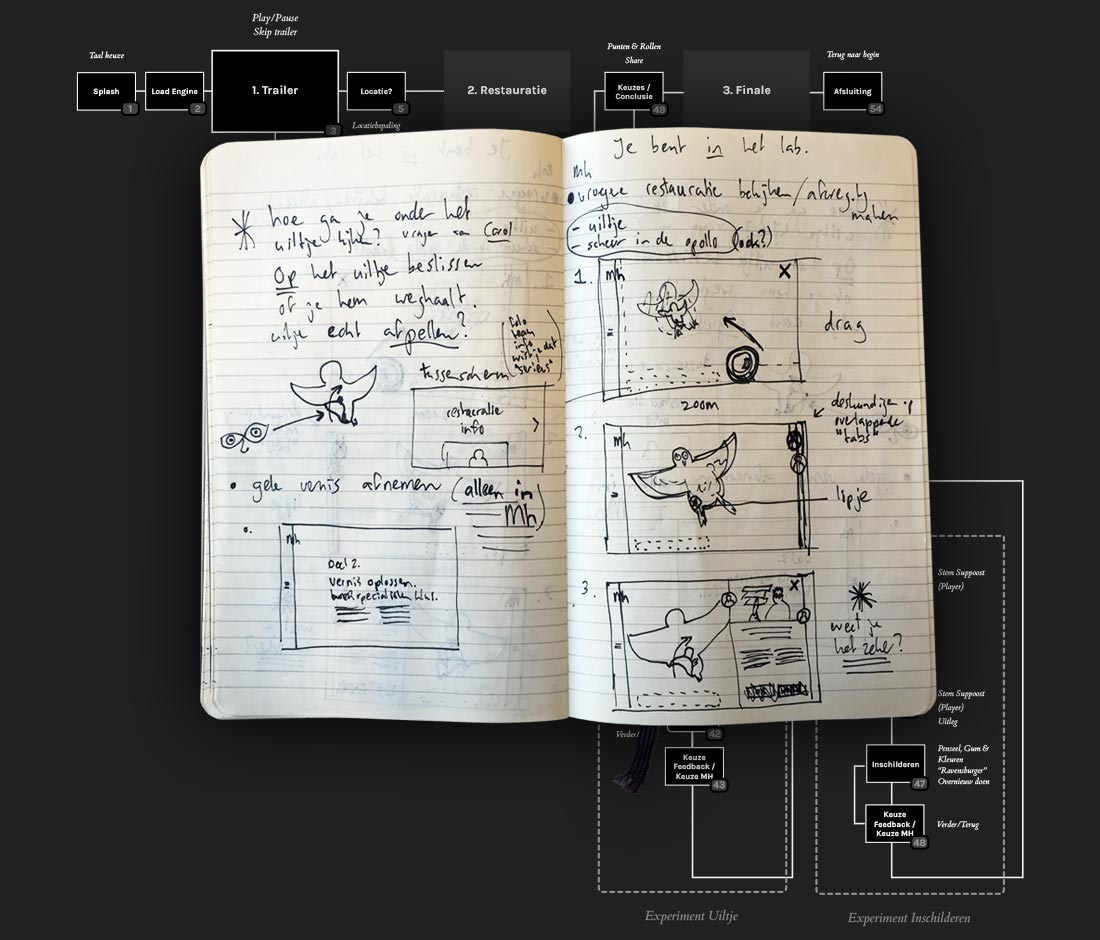 Play/Pause
Skip trailer
Taal keuze
Splash
1
Load Engine
2
1. Trailer
3
Locatie?
5
Locatiebepaling
2. Restauratie
Punten & Rollen
Share
Keuzes /
Conclusie
49
3. Finale
Terug naar begin
Afsluiting
54
hoe ga je onder het
uiltje kijken? vragen aan Carol
Op het uiltje beslissen
of je hem weghaalt.
uiltje echt afpellen?
foto
team
info
"serieus"
tussenscherm
restauratie
info
• gele vernis afnemen (alleen in
Mh)
mh
Deel 2.
vernis oplossen.
Je bent in het lab.
mh
• vroegere restauratie bekijken/afweging
maken
- uiltje
- scheur in de apollo (ook?)
1.
mh
X
drag
zoom
2.
mh
deskundigen
overlappende
"tabs"
lipje
3.
mh
X
weet je
het zeker?
Stem Suppoost
(Player)
Stem Suppoost
(Player)
Uitleg
Verder/
42
Keuze
Feedback /
Keuze MH
43
Inschilderen
47
Penseel, Gum &
Kleuren
"Ravensburger"
Overnieuw doen
Keuze
Feedback /
Keuze MH
48
Verder/Terug
Experiment Uiltje
Experiment Inschilderen